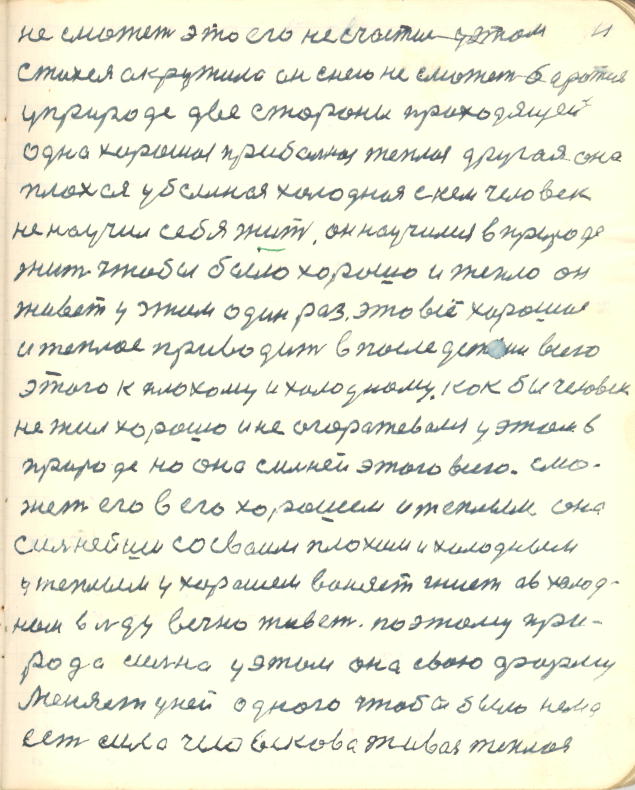 не сможет это его несчастие у этом 11
стихея окружила он снею не сможет баротся
у природе две стороны проходящей
одна хорошая прибалная теплая другая она
плохая убалная холодная с кем человек
не научил себя жит, он научился в природе
жит чтобы было хорошо и тепло он
живет у этим один раз, это всё хорошие
и теплое приводит в последствии всего
этого к плохому и холодному. как бы человек
не жил хорошо и не огоражевался у этом в
природе но она силней этого всего. смо-
жет его в его хорошем и теплым она
силнейши со своим плохим и холодным
у теплым у хорошем воняет гниет ав холод-
ном в лду вечно живет. поэтому при-
рода силна у этом она свою форму
меняет у ней одного чтобы было нема
ест сила человекова живая теплая